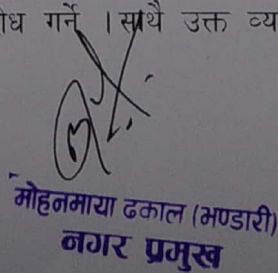 गर्ने । साथै उक्त
मोहनमाया ढकाल (भण्डारी)
नगर प्रमुख